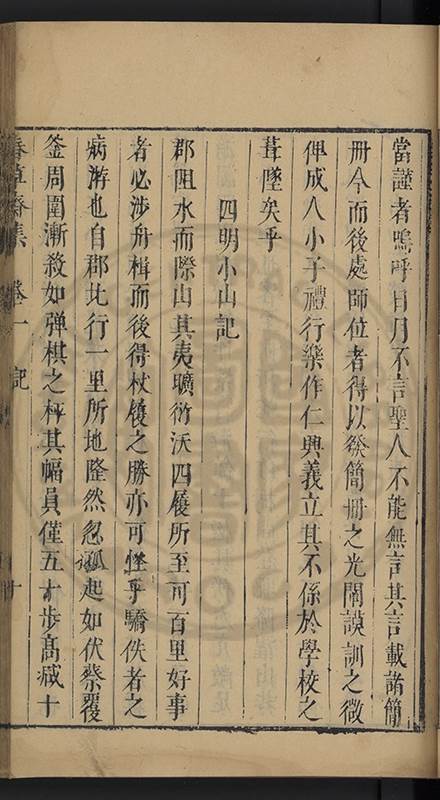 當謹者嗚呼日月不言聖人不能無言其言載諸簡
冊今而後處師位者得以發簡冊之光闡謨訓之微
俾成人小子禮行樂作仁興義立其不係於學校之
葺墜矣乎
四明小山記
郡阻水而際山其夷曠衍沃四履所至可百里好事
者必涉舟楫而後得杖屨之勝亦可怪乎驕佚者之
病游也自郡北行一里所地隆然忽孤起如伏祭覆
釜周圍漸殺如弹棋之枰其幅員僅五十步高减十
春草齋集 卷一 記 十